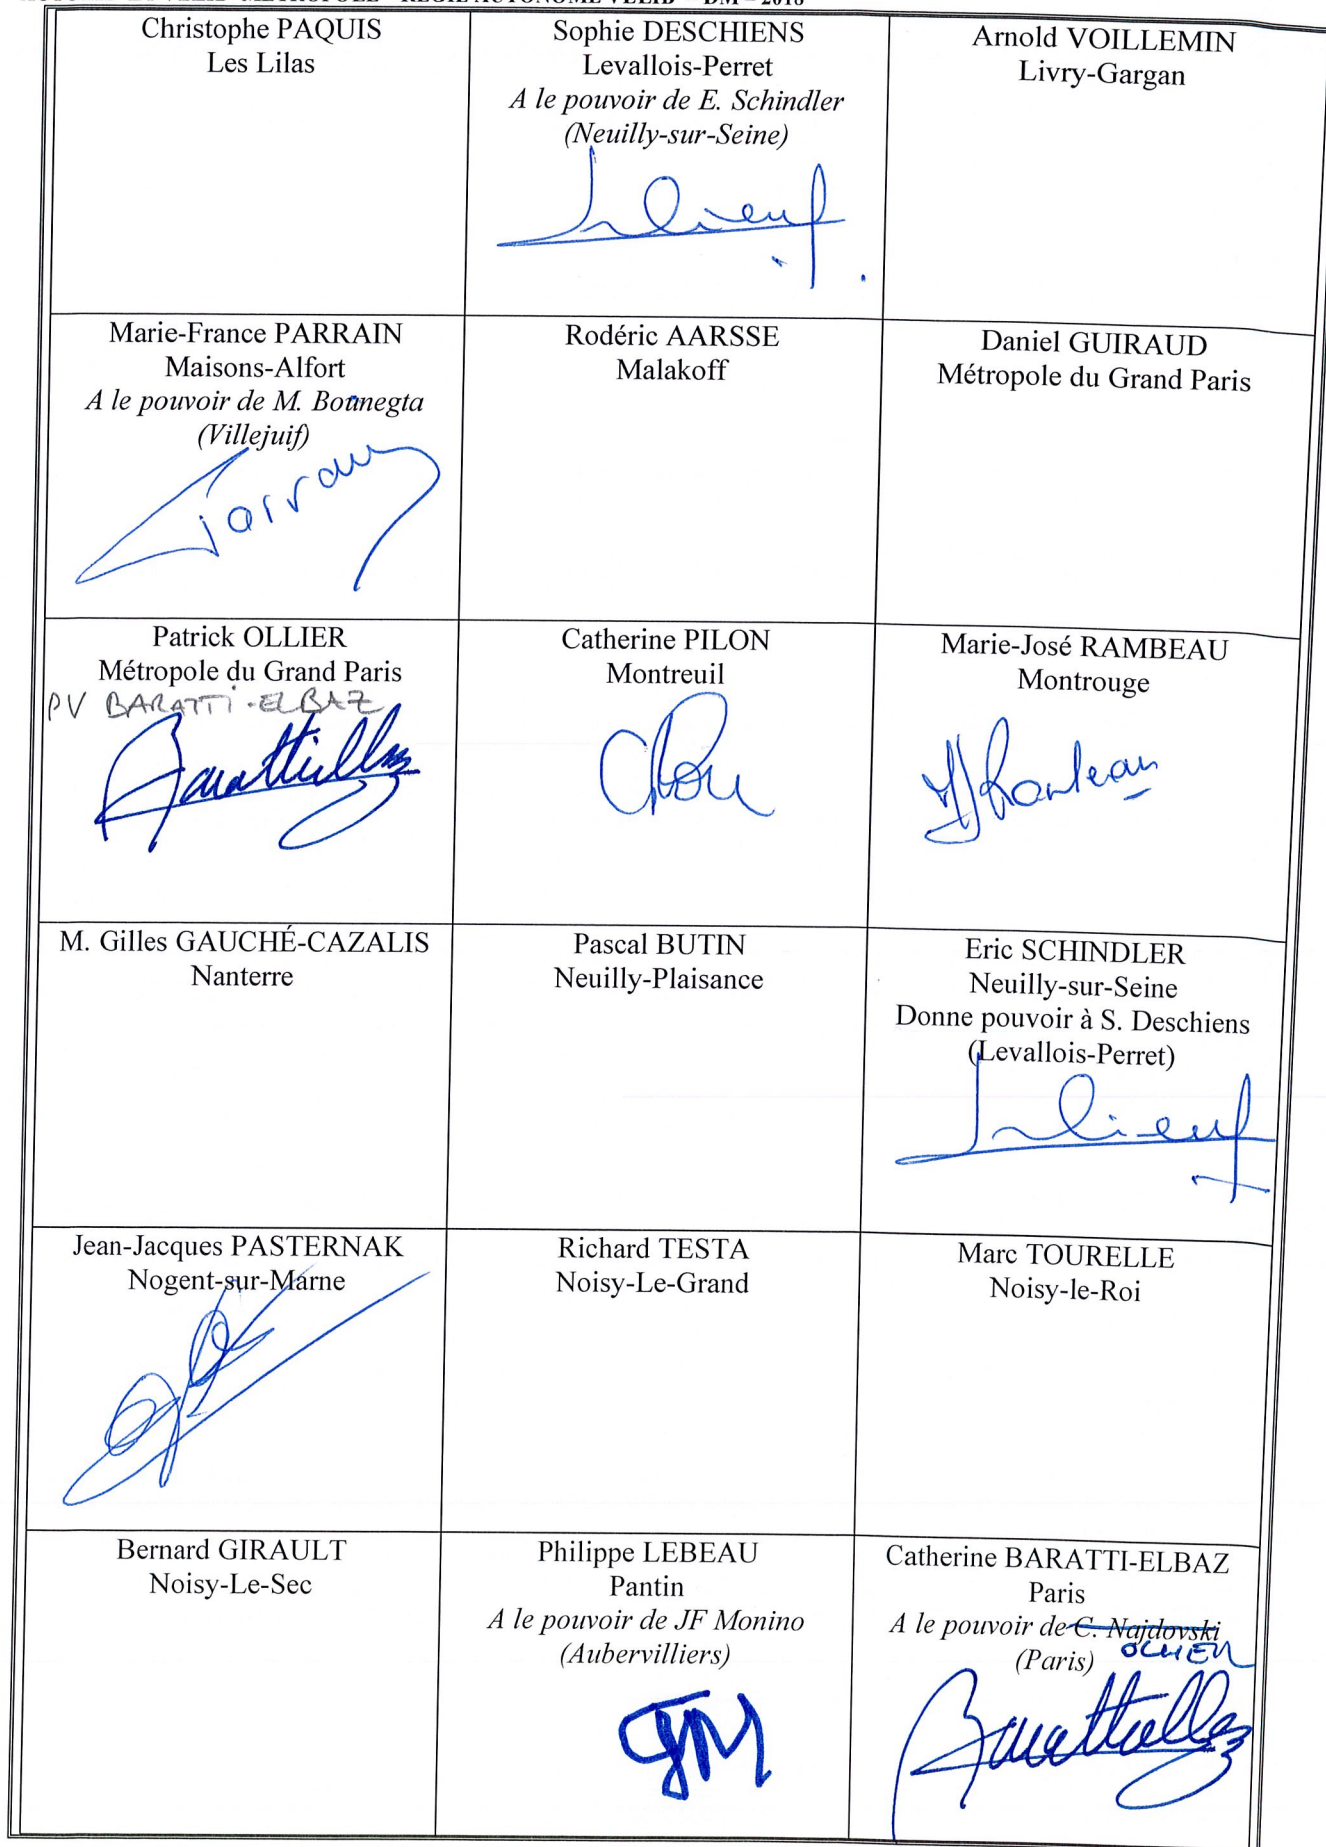 Christophe PAQUIS
Les Lilas
Sophie DESCHIENS
Levallois-Perret
A le pouvoir de E. Schindler
(Neuilly-sur-Seine)
Arnold VOILLEMIN
Livry-Gargan
Marie-France PARRAIN
Maisons-Alfort
A le pouvoir de M. Bounegta
(Villejuif)
Rodéric AARSSE
Malakoff
Daniel GUIRAUD
Métropole du Grand Paris
Patrick OLLIER
Métropole du Grand Paris
PV BARATTI-ELBAZ
Catherine PILON
Montreuil
Marie-José RAMBEAU
Montrouge
M. Gilles GAUCHÉ-CAZALIS
Nanterre
Pascal BUTIN
Neuilly-Plaisance
Eric SCHINDLER
Neuilly-sur-Seine
Donne pouvoir à S. Deschiens
(Levallois-Perret)
Jean-Jacques PASTERNAK
Nogent-sur-Marne
Richard TESTA
Noisy-Le-Grand
Marc TOURELLE
Noisy-le-Roi
Bernard GIRAULT
Noisy-Le-Sec
Philippe LEBEAU
Pantin
A le pouvoir de JF Monino
(Aubervilliers)
Catherine BARATTI-ELBAZ
Paris
A le pouvoir de C. Najdovski
(Paris) OLLIER